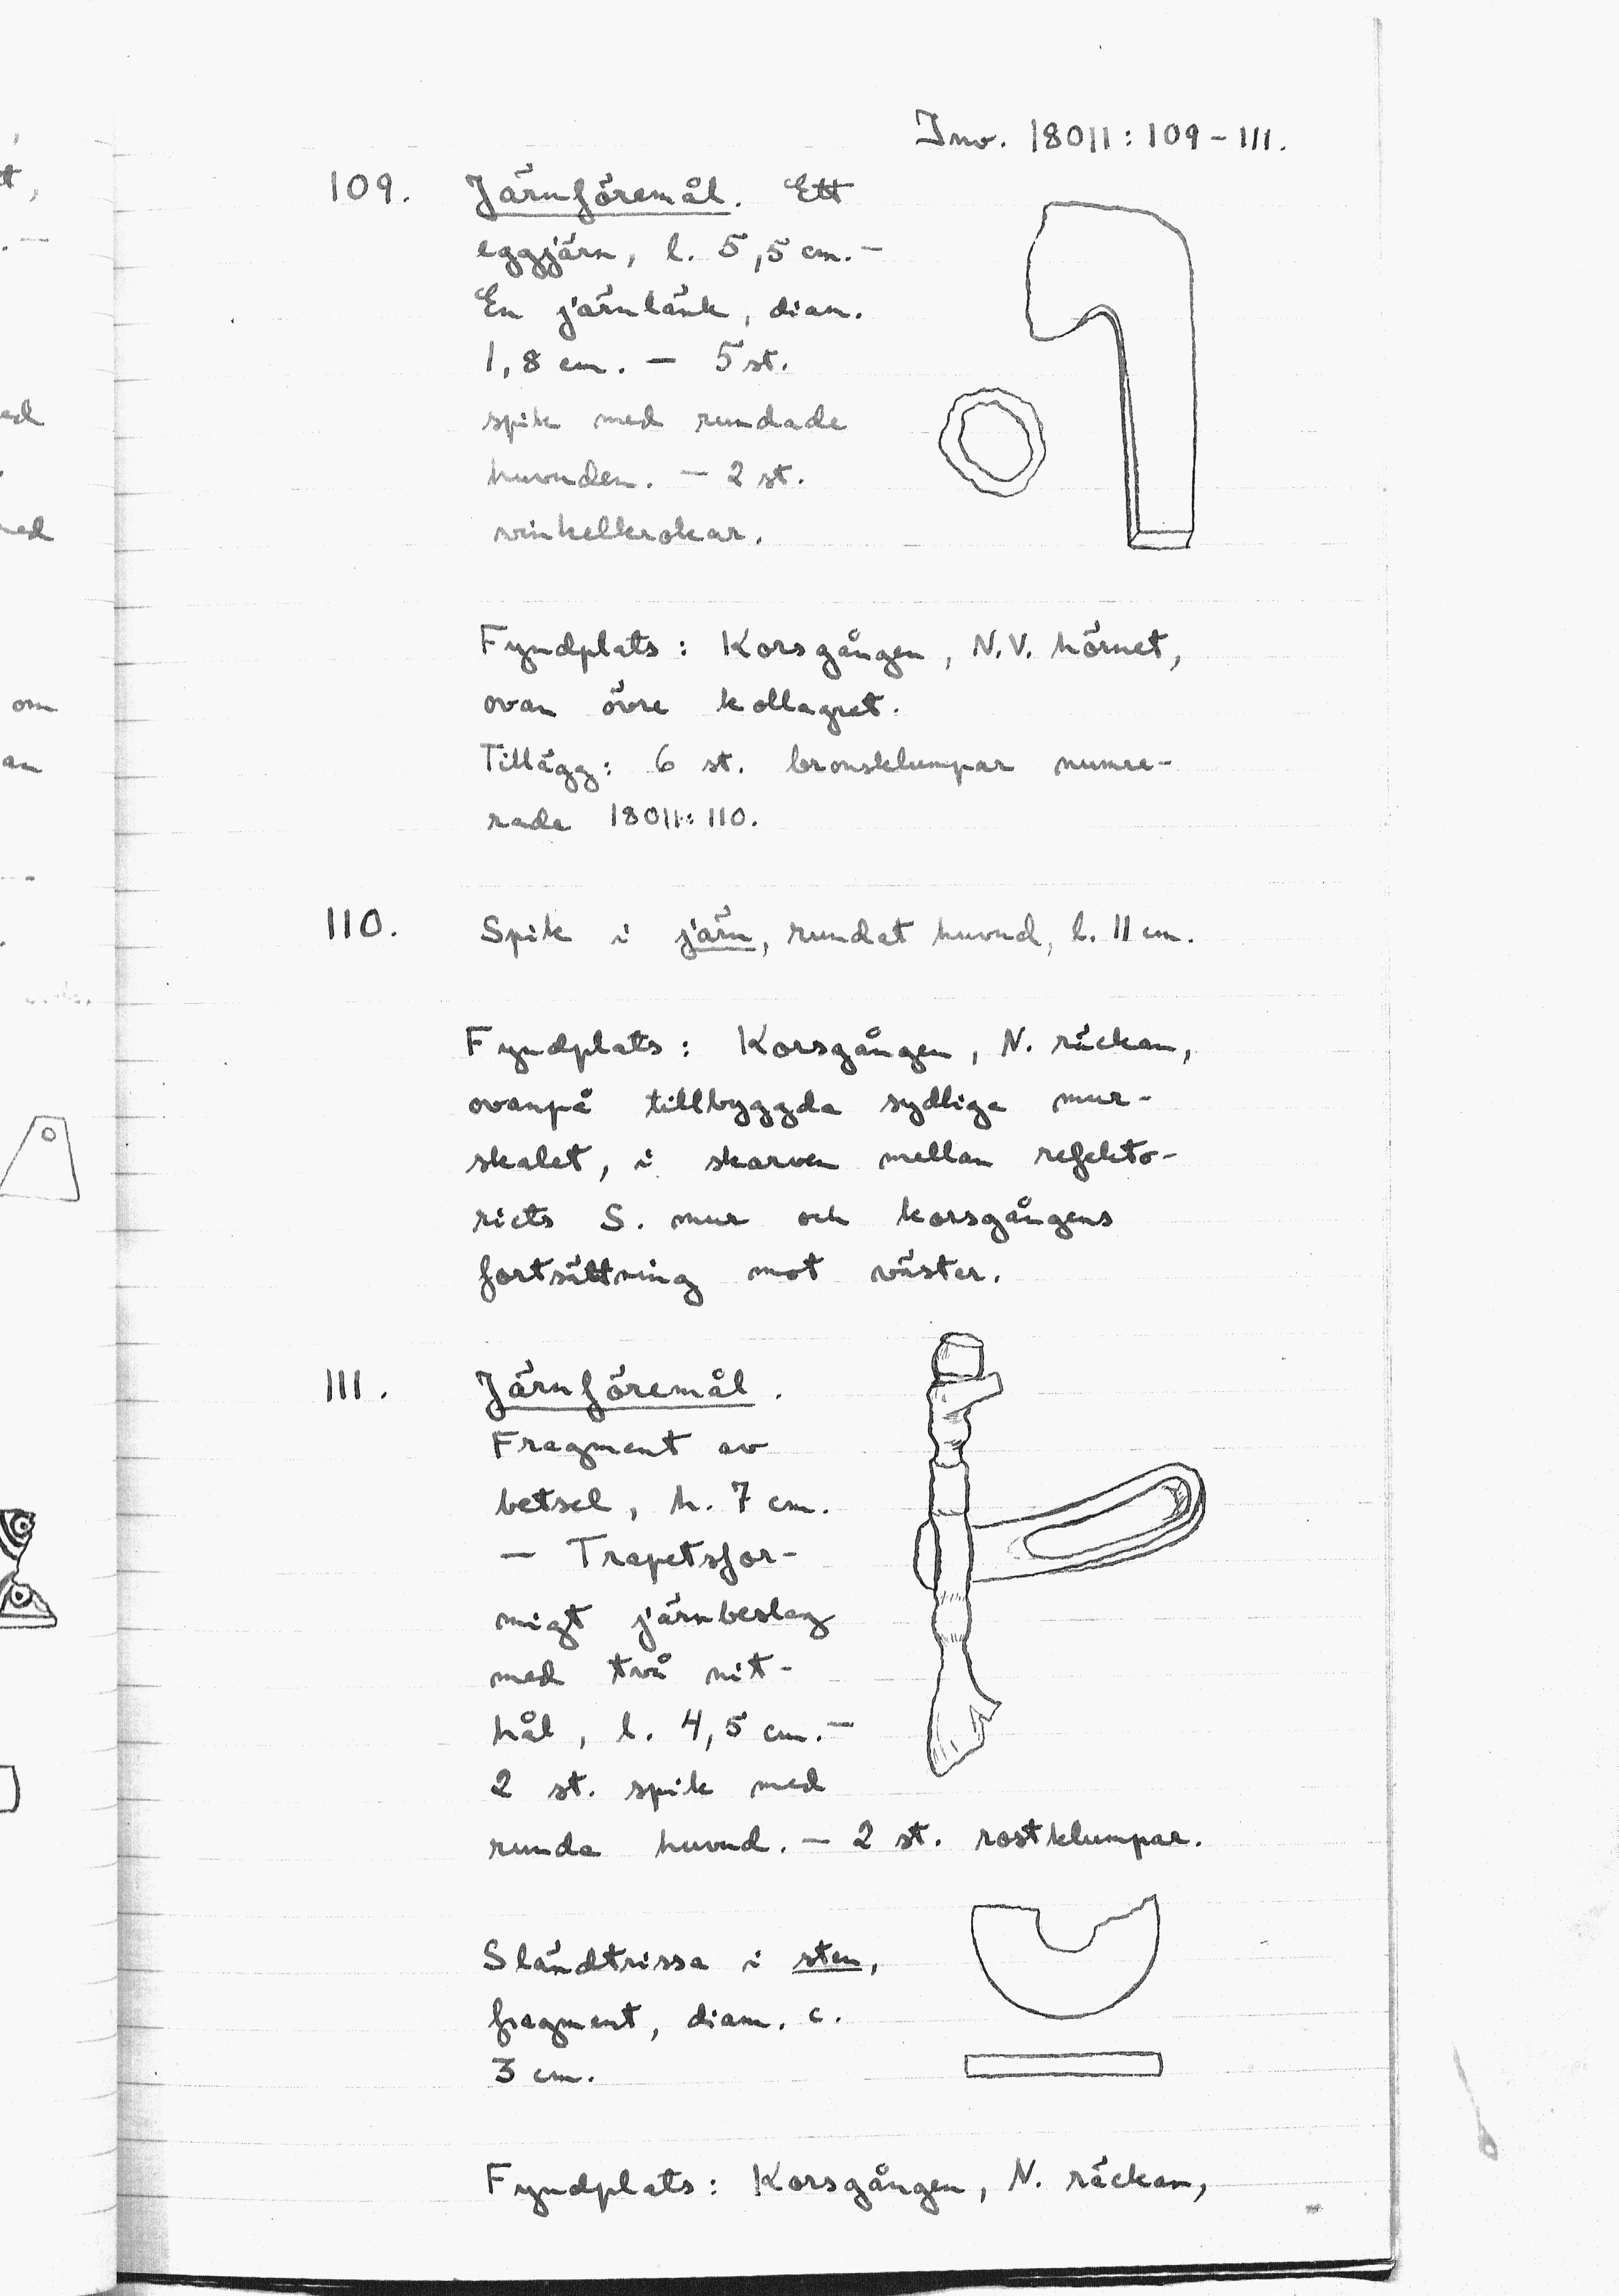 Inv. 18011: 109-111.
109. Järnföremål. Ett
eggjärn, l. 5,5 cm. -
En järnlänk, diam.
1,8 cm. - 5 st.
spik med rundade
huvuden. - 2 st.
vinkelkrokar.
Fyndplats: Korsgången, N.V. hörnet,
ovan övre kollagret.
Tillägg: 6 st. bronsklumpar numre-
rade 18011: 110.
110. Spik i järn, rundat huvud, l. 11 cm.
Fyndplats: Korsgången, N. räckan,
ovanpå tillbyggda sydliga mur-
skalet, i skarven mellan refekto-
riets S. mur och korsgångens
fortsättning mot väster.
111. Järnföremål.
Fragment av
betsel, h. 7 cm.
- Trapetsfor-
migt järnbeslag
med två nit-
hål, l. 4,5 cm. -
2 st. spik med
runda huvud. - 2 st. rostklumpar.
Sländtrissa i sten,
fragment, diam. c.
3 cm.
Fyndplats: Korsgången, N. räckan,